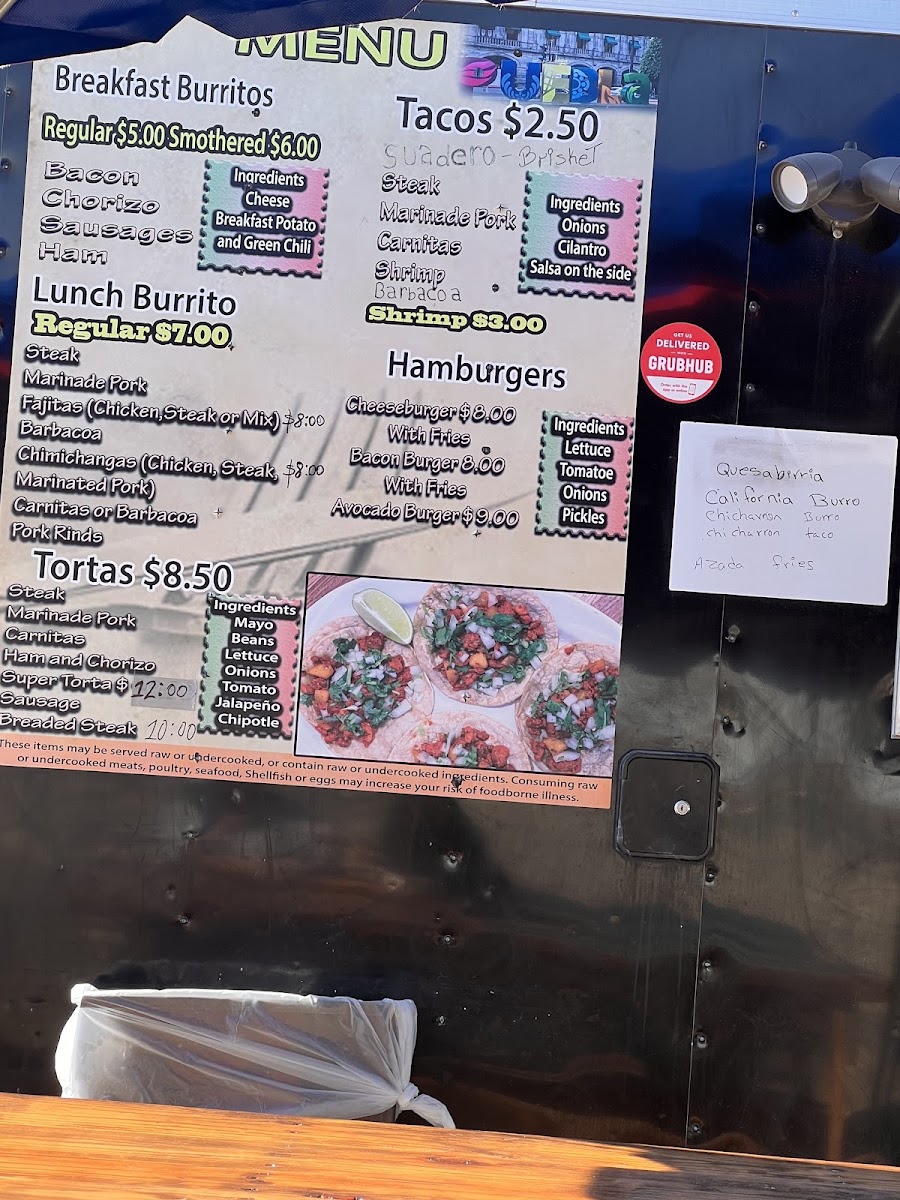 MENU
Breakfast Burritos
Regular $5.00 Smothered $6.00
Bacon
Chorizo
Sausages
Ham
Ingredients
Cheese
Breakfast Potato
and Green Chili
Lunch Burrito
Regular $7.00
Steak
Marinade Pork
Fajitas (Chicken,Steak or Mix) $8:00
Barbacoa
Chimichangas (Chicken, Steak, $8:00
Marinated Pork)
Carnitas or Barbacoa
Pork Rinds
Tortas $8.50
Steak
Marinade Pork
Carnitas
Ham and Chorizo
Super Torta $ 12:00
Sausage
Breaded Steak 10:00
Ingredients
Mayo
Beans
Lettuce
Onions
Tomato
Jalapeño
Chipotle
PUEBLa
Tacos $2.50
Suadero - Brisket
Steak
Marinade Pork
Carnitas
Shrimp
Barbacoa
Shrimp $3.00
Ingredients
Onions
Cilantro
Salsa on the side
Hamburgers
Cheeseburger $8.00
With Fries
Bacon Burger 8.00
With Fries
Avocado Burger $9.00
Ingredients
Lettuce
Tomatoe
Onions
Pickles
These items may be served raw or undercooked, or contain raw or undercooked ingredients. Consuming raw
or undercooked meats, poultry, seafood, Shellfish or eggs may increase your risk of foodborne illness.
GET US
DELIVERED
WITH
GRUBHUB
Order with the
app or online
Quesabirria
California Burro
Chicharron Burro
chicharron taco
Azada fries